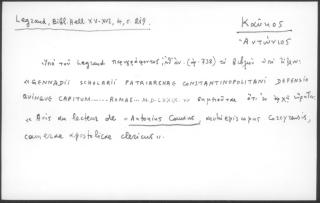 Legrand, Bibl. Hell. XV-XVI, 4, σ. 219.
Καῦκος
Ἀντώνιος
Ὑπὸ τοῦ Legrand περιγράφεται, (ἀρ. 738) τὸ βιβλίο ὑπὸ
«GENNADII SCHOLARII PATRIARCHAE CONSTANTINOPOLITANI DEFENSIO
QUINQUE CAPITUM...... ROMAE... M.D.LXXIX.» ὅτι ἐν
« Avis au lecteur de «Antonius Caucus, archiepiscopus Corcyrensis,
camerae apostolicae clericus».